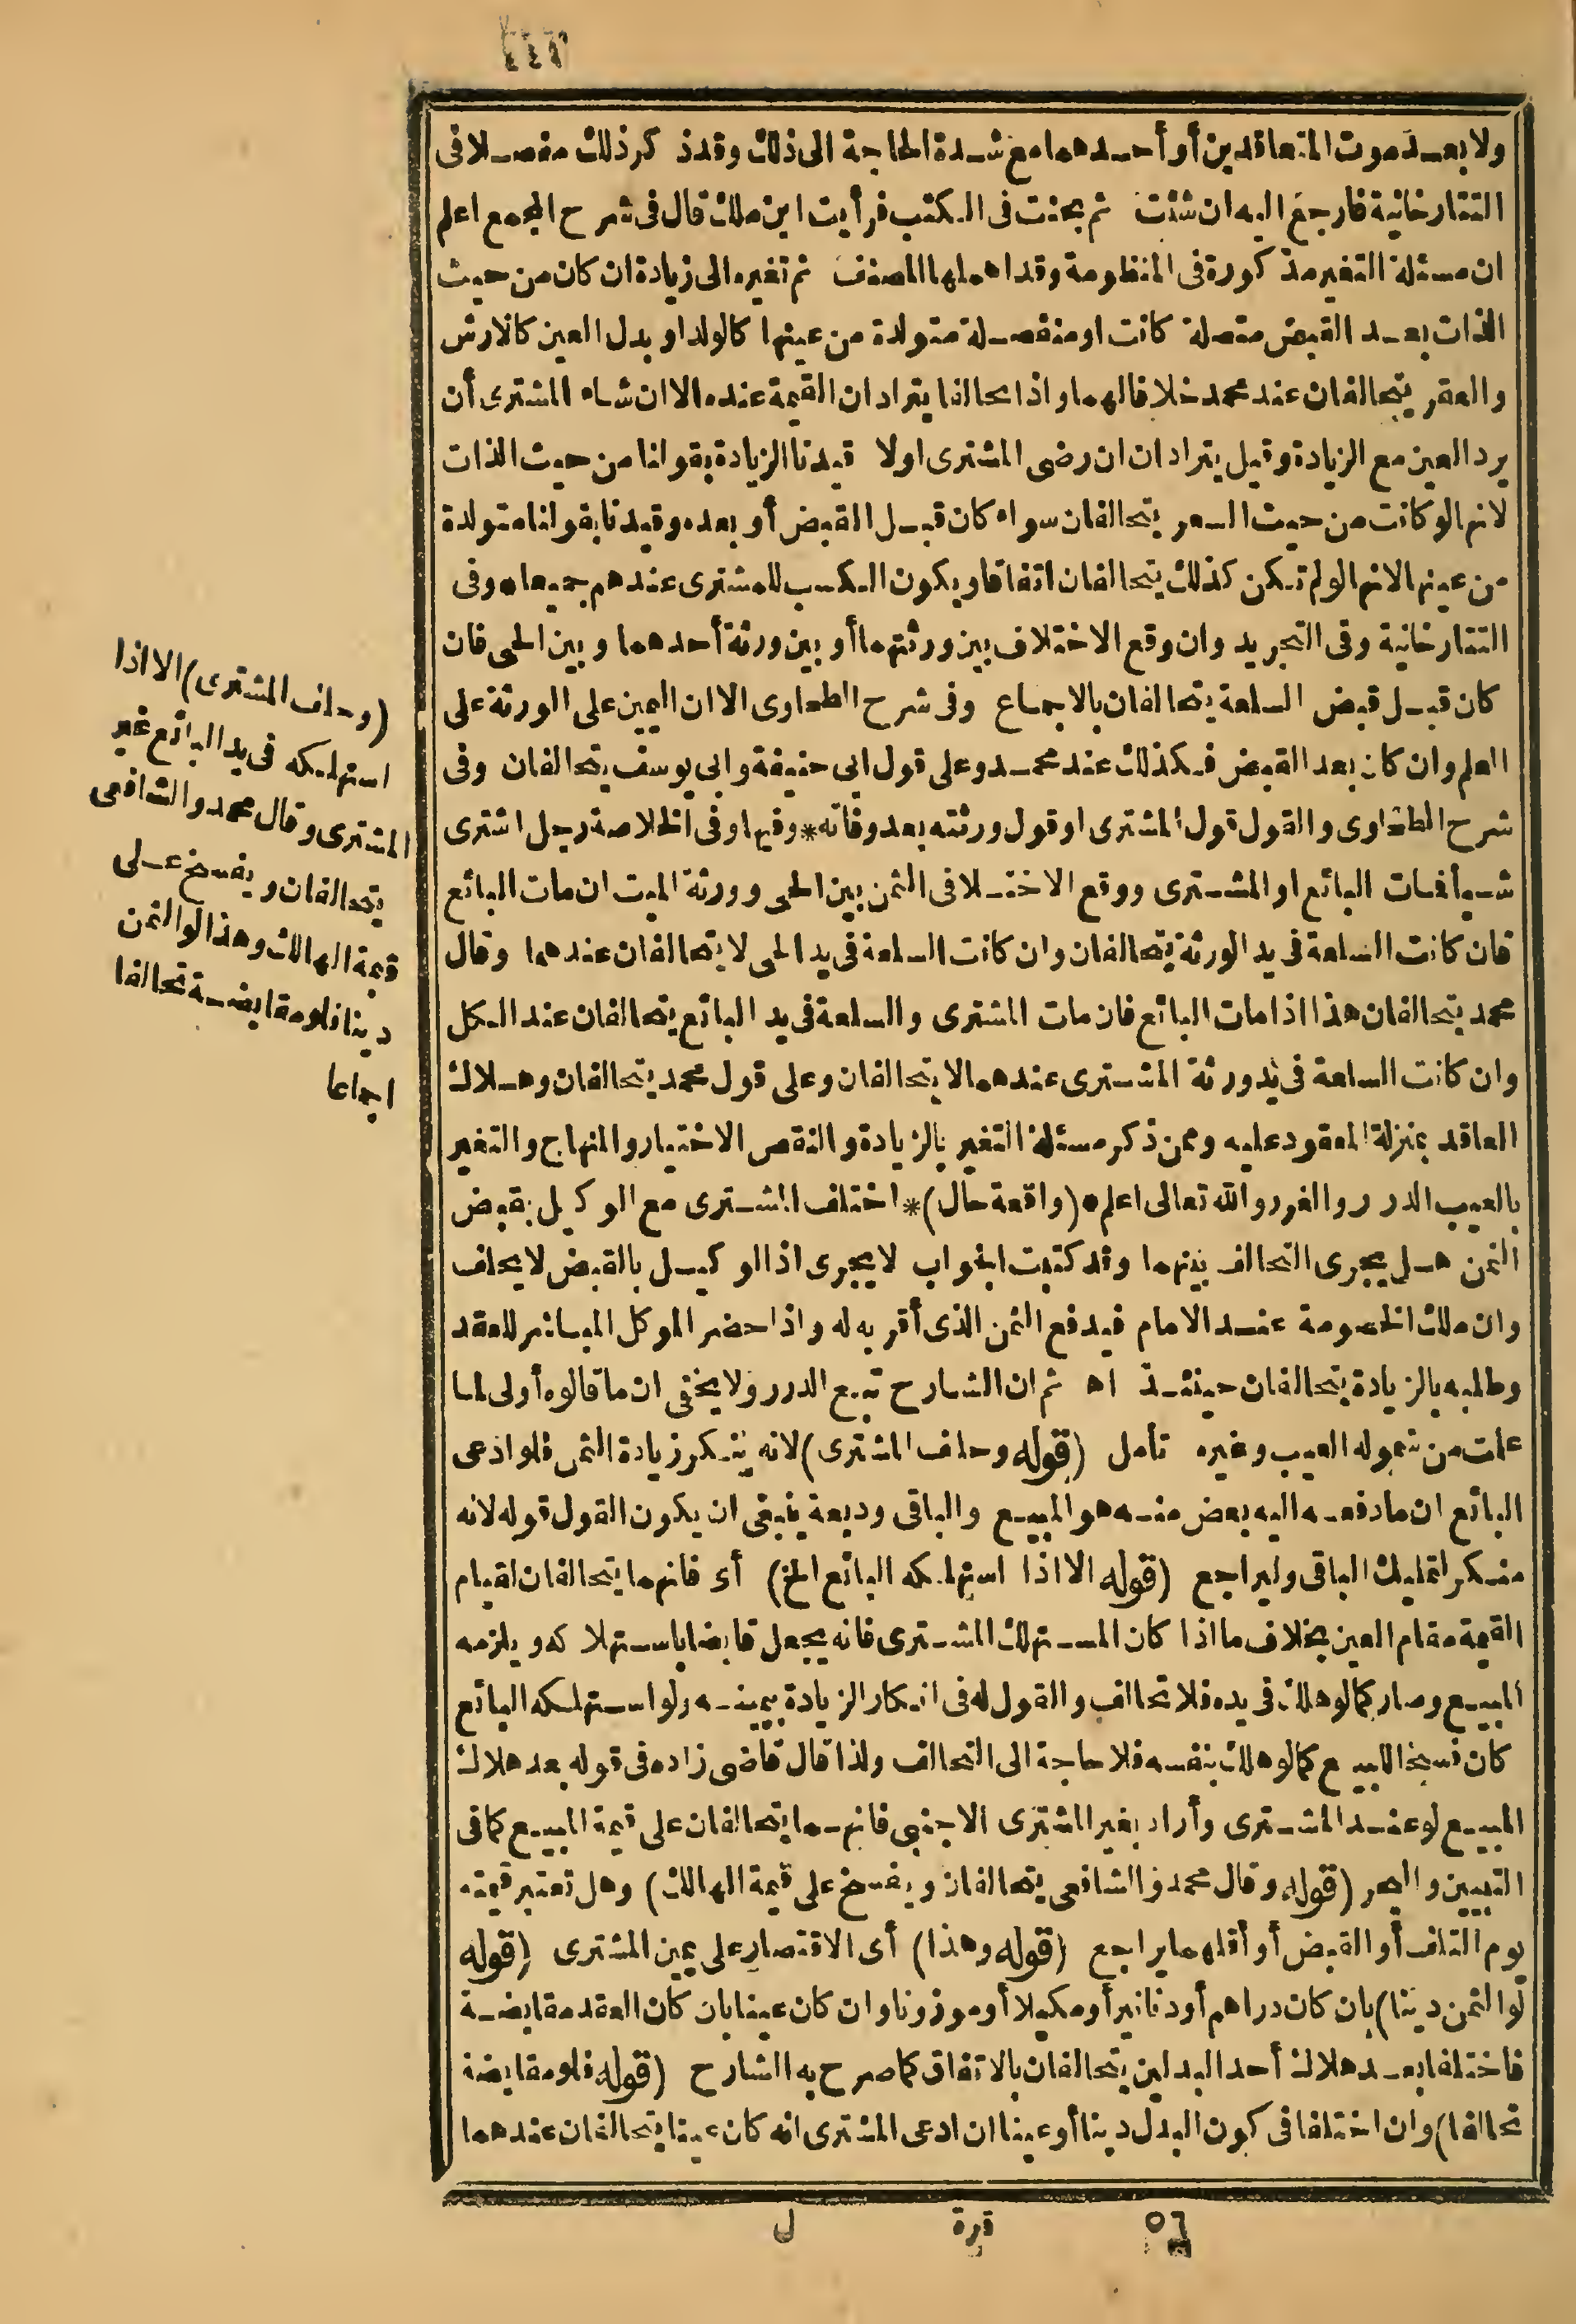 ولا بعد موت المتعاقدين أو أحدهما مع شدة الحاجة الى ذلك وقد ذكر ذلك مفصلا فى
التتارخانية فارجع اليه ان شئت ثم بحثت فى الكتب فرأيت ابن ملك قال فى شرح المجمع اعلم
ان مسئلة التغير مذكورة فى المنظومة وقد اهملها المصنف ثم تغيره الى زيادة ان كان من حيث
الذات بعد القبض متصلة كانت او منفصلة متولدة من عينها كالولد او بدل العين كالارش
والعقر يتحالفان عند محمد خلافا لهما واذا تحالفا يترادان القيمة عنده الا ان شاء المشترى أن
يرد العين مع الزيادة وقيل يترادان ان رضى المشترى اولا قيدنا الزيادة بقولنا من حيث الذات
لانها لو كانت من حيث السعر يتحالفان سواء كان قبل القبض أو بعده وقيدنا بقولنا متولدة
من عينها لانها لو لم تكن كذلك يتحالفان اتفاقا ويكون الكسب للمشترى عندهم جميعا اه وفى
التتارخانية وفى التجريد وان وقع الاختلاف بين ورثتهما أو بين ورثة أحدهما وبين الحى فان
كان قبل قبض السلعة يتحالفان بالاجماع وفى شرح الطحاوى الا ان اليمين على الورثة على
العلم وان كان بعد القبض فكذلك عند محمد وعلى قول ابى حنيفة وابى يوسف يتحالفان وفى
شرح الطحاوى والقول قول المشترى او قول ورثته بعد وفاته * وفيها وفى الخلاصة رجل اشترى
شيأ فمات البائع او المشترى ووقع الاختلاف فى الثمن بين الحى وورثة الميت ان مات البائع
فان كانت السلعة فى يد الورثة يتحالفان وان كانت السلعة فى يد الحى لا يتحالفان عندهما وقال
محمد يتحالفان هذا اذا مات البائع فان مات المشترى والسلعة فى يد البائع يتحالفان عند الكل
وان كانت السلعة فى يد ورثة المشترى عندهما لا يتحالفان وعلى قول محمد يتحالفان وهلاك
العاقد بمنزلة المعقود عليه وممن ذكر مسئلة التغير بالزيادة والنقص الاختيار والمنهاج والتغير
بالعيب الدرر والغرر والله تعالى اعلم * (واقعة حال) * اختلف المشترى مع الوكيل بقبض
الثمن هل يجرى التحالف بينهما وقد كتبت الجواب لا يجرى اذ الوكيل بالقبض لا يحلف
وان ملك الخصومة عند الامام فيدفع الثمن الذى أقر به له واذا حضر الموكل المباشر للعقد
وطلبه بالزيادة يتحالفان حينئذ اه ثم ان الشارح تبع الدرر ولا يخفى ان ما قالوه أولى لما
علمت من شموله العيب وغيره تأمل (قوله وحلف المشترى) لانه ينكر زيادة الثمن فلو ادعى
البائع ان ما دفعه اليه بعض منه هو المبيع والباقى وديعة ينبغى ان يكون القول قوله لانه
منكر لتمليك الباقى وليراجع (قوله الا اذا استهلكه البائع الخ) أى فانهما يتحالفان لقيام
القيمة مقام العين بخلاف ما اذا كان المستهلك المشترى فانه يجعل قابضا باستهلاكه ويلزمه
المبيع وصار كما لو هلك فى يده فلا تحالف والقول له فى انكار الزيادة بيمينه ولو استهلكه البائع
كان فسخ المبيع كما لو هلك بنفسه فلا حاجة الى التحالف ولذا قال قاضى زاده فى قوله بعد هلاك
المبيع لو عند المشترى وأراد بغير المشترى الاجنبى فانهما يتحالفان على قيمة المبيع كما فى
التبيين والبحر (قوله وقال محمد والشافعى يتحالفان ويفسخ على قيمة الهالك) وهل تعتبر قيمته
يوم التلف أو القبض أو أقلهما يراجع (قوله وهذا) أى الاقتصار على يمين المشترى (قوله
لو الثمن دينا) بان كان دراهم أو دنانير أو مكيلا أو موزونا وان كان عينا بان كان العقد مقايضة
فاختلفا بعد هلاك أحد البدلين يتحالفان بالاتفاق كما صرح به الشارح (قوله فلو مقايضة
تحالفا) وان اختلفا فى كون البدل دينا أو عينا ان ادعى المشترى انه كان عينا يتحالفان عندهما
(وحلف المشترى) الا اذا
استهلكه فى يد البائع غير
المشترى وقال محمد والشافعى
يتحالفان ويفسخ على
قيمة الهالك وهذا لو الثمن
دينا فلو مقايضة تحالفا
اجماعا
٥٦ قرة ل